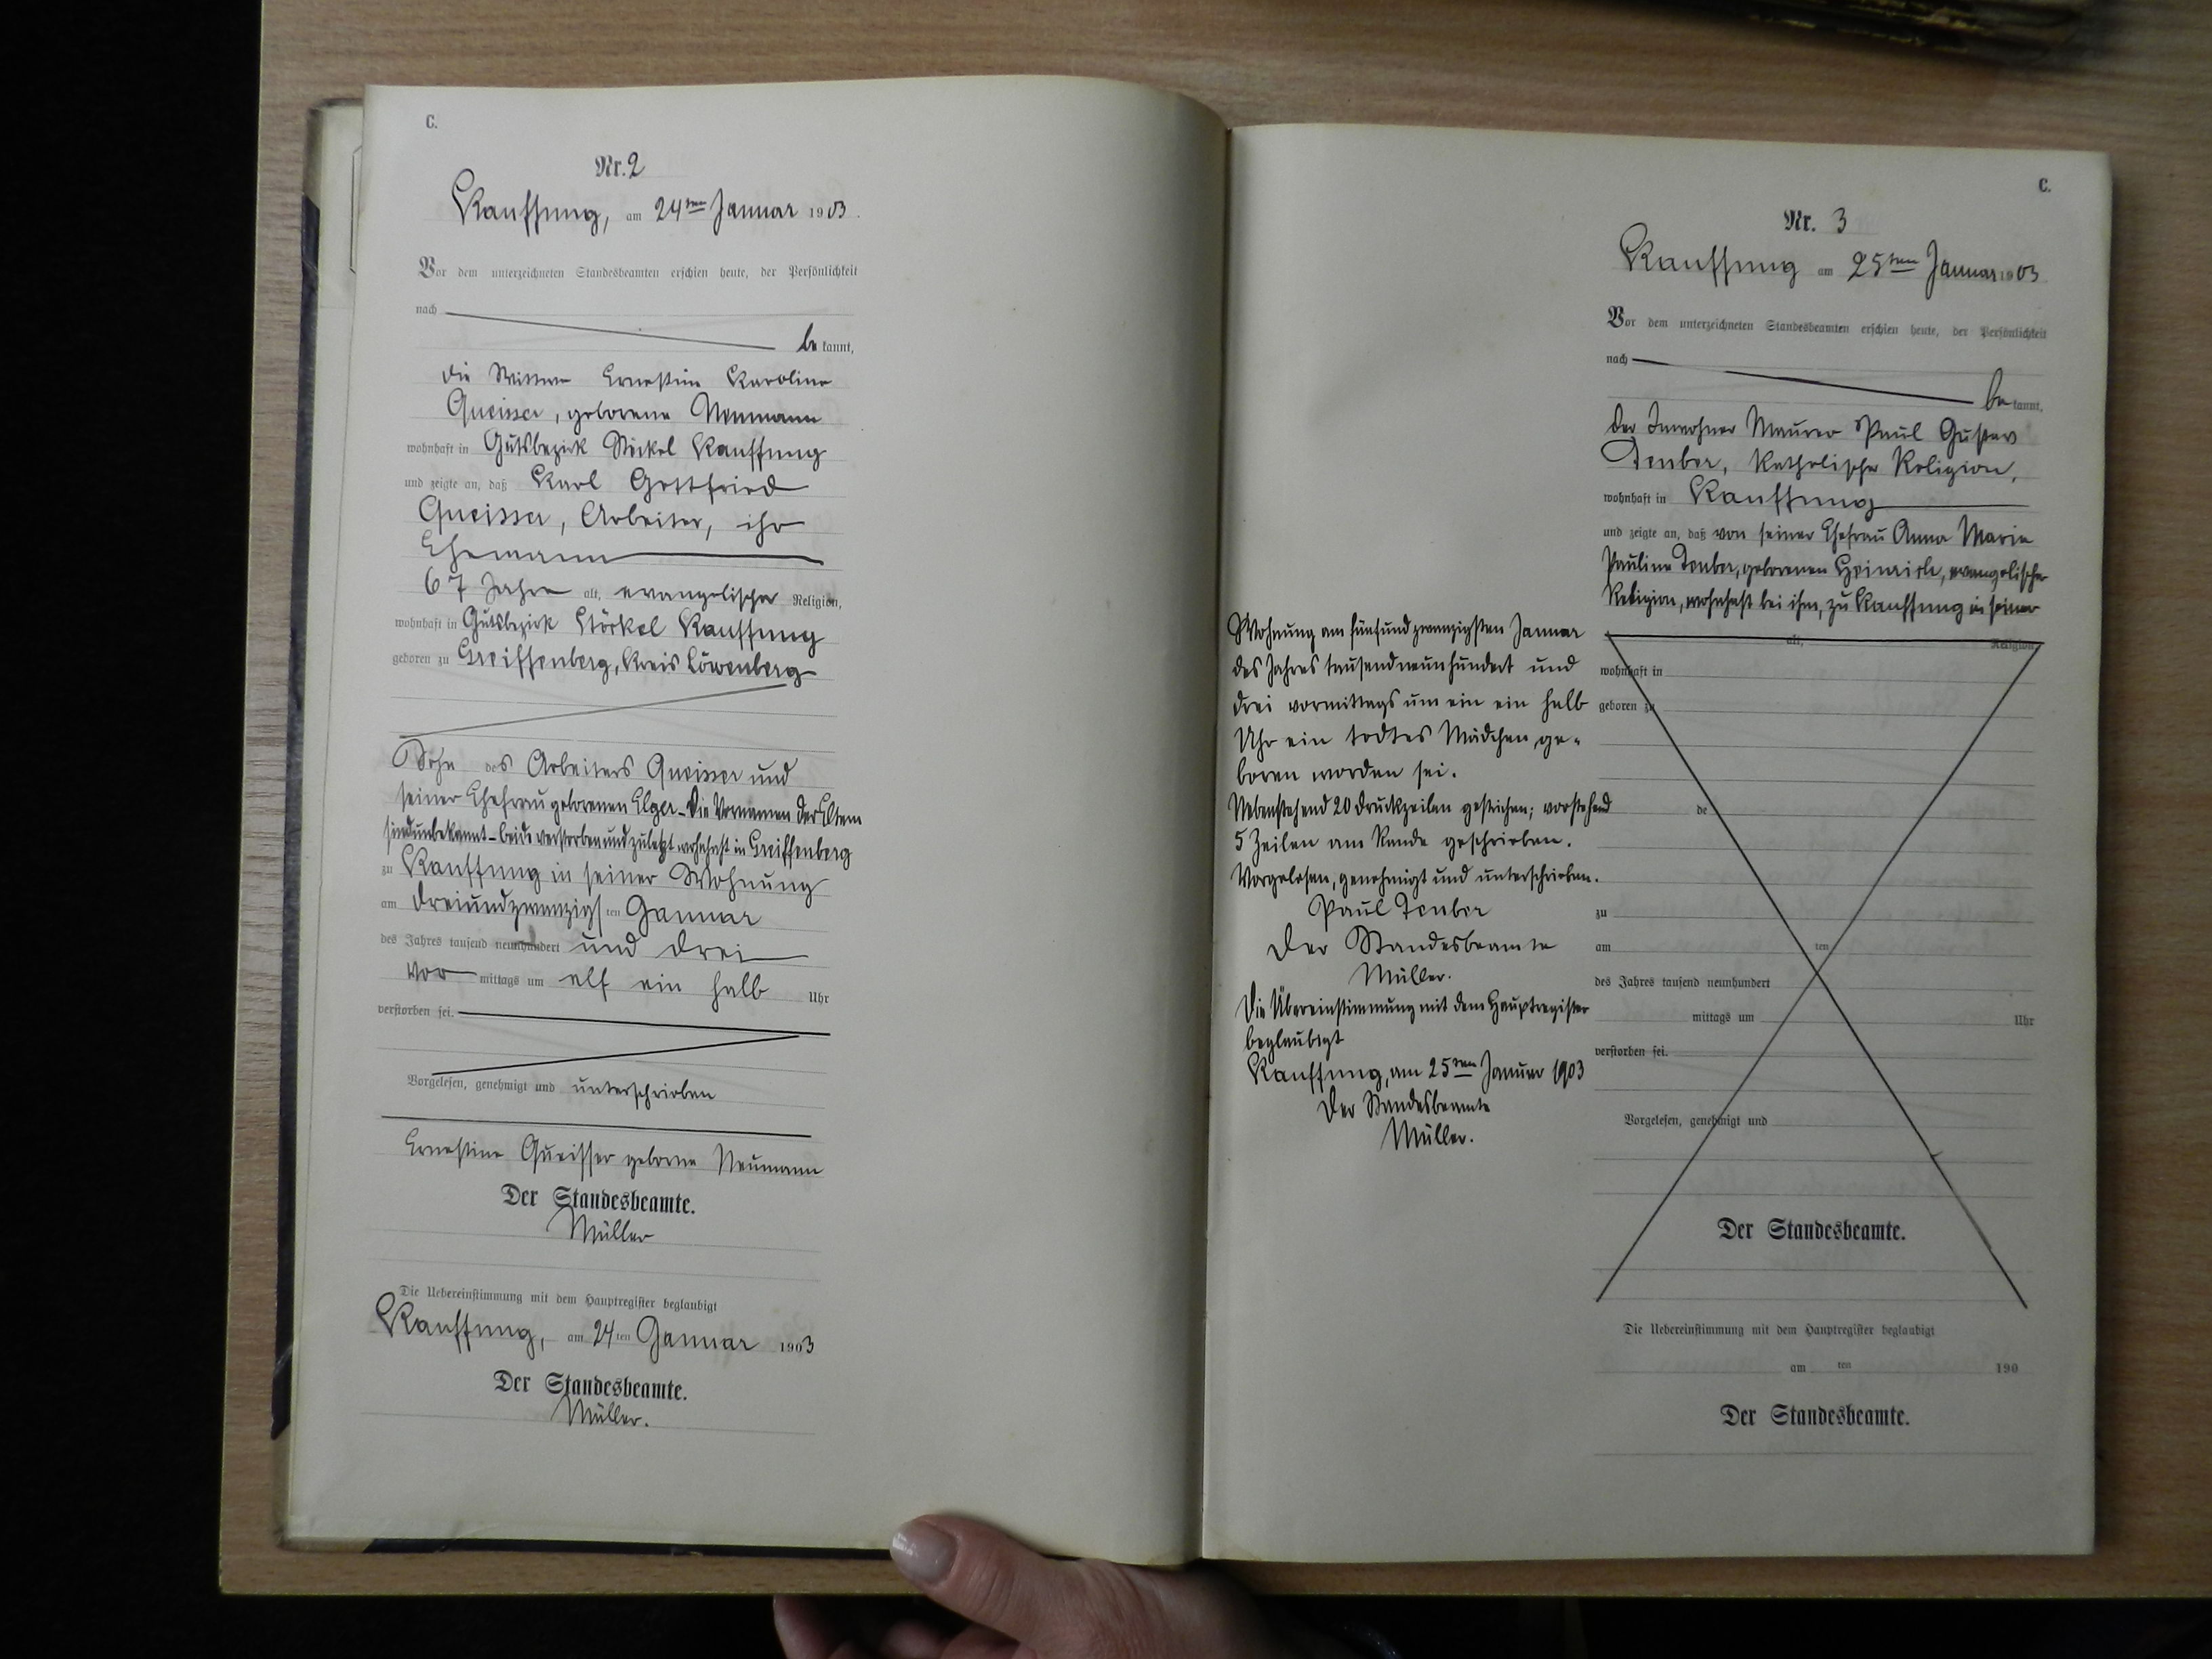 C.
Nr. 2
Kauffung, am 24ten Januar 1903.
Vor dem unterzeichneten Standesbeamten erschien heute, der Persönlichkeit
nach
be kannt,
die Wittwe Ernestine Karoline
Queisser, geborene Neumann
wohnhaft in Gutsbezirk Stöckel Kauffung
und zeigte an, daß Karl Gottfried
Queisser, Arbeiter, ihr
Ehemann
67 Jahre alt, evangelischer Religion,
wohnhaft in Gutsbezirk Stöckel Kauffung
geboren zu Greiffenberg, Kreis Löwenberg
Sohn des Arbeiters Queisser und
seiner Ehefrau geborenen Elger - Die Vornamen der Eltern
sind unbekannt - beide verstorben und zuletzt wohnhaft in Greiffenberg
zu Kauffung in seiner Wohnung
am dreiundzwanzigsten Januar
des Jahres tausend neunhundert und drei
vor mittags um elf ein halb Uhr
verstorben sei.
Vorgelesen, genehmigt und unterschrieben
Ernestine Queisser geborne Neumann
Der Standesbeamte.
Müller
Die Uebereinstimmung mit dem Hauptregister beglaubigt
Kauffung, am 24ten Januar 1903
Der Standesbeamte.
Müller.
C.
Nr. 3
Kauffung am 25ten Januar 1903
Vor dem unterzeichneten Standesbeamten erschien heute, der Persönlichkeit
nach
be kannt,
der Inwohner Maurer Paul Gustav
Teuber, katholischer Religion,
wohnhaft in Kauffung
und zeigte an, daß von seiner Ehefrau Anna Marie
Pauline Teuber, geborenen Heinrich, evangelischer
Religion, wohnhaft bei ihm, zu Kauffung in seiner
Wohnung am fünfundzwanzigsten Januar
des Jahres tausendneunhundert und
drei vormittags um ein ein halb
Uhr ein todtes Mädchen ge-
boren worden sei.
Nebenstehend 20 Druckzeilen gestrichen; vorstehend
5 Zeilen am Rande geschrieben.
Vorgelesen, genehmigt und unterschrieben.
Paul Teuber
Der Standesbeamte
Müller.
Die Übereinstimmung mit dem Hauptregister
beglaubigt
Kauffung, am 25ten Januar 1903
Der Standesbeamte
Müller.
alt, Religion,
wohnhaft in
geboren zu
de
zu
am ten
des Jahres tausend neunhundert
mittags um Uhr
verstorben sei.
Vorgelesen, genehmigt und
Der Standesbeamte.
Die Uebereinstimmung mit dem Hauptregister beglaubigt
am ten 190
Der Standesbeamte.